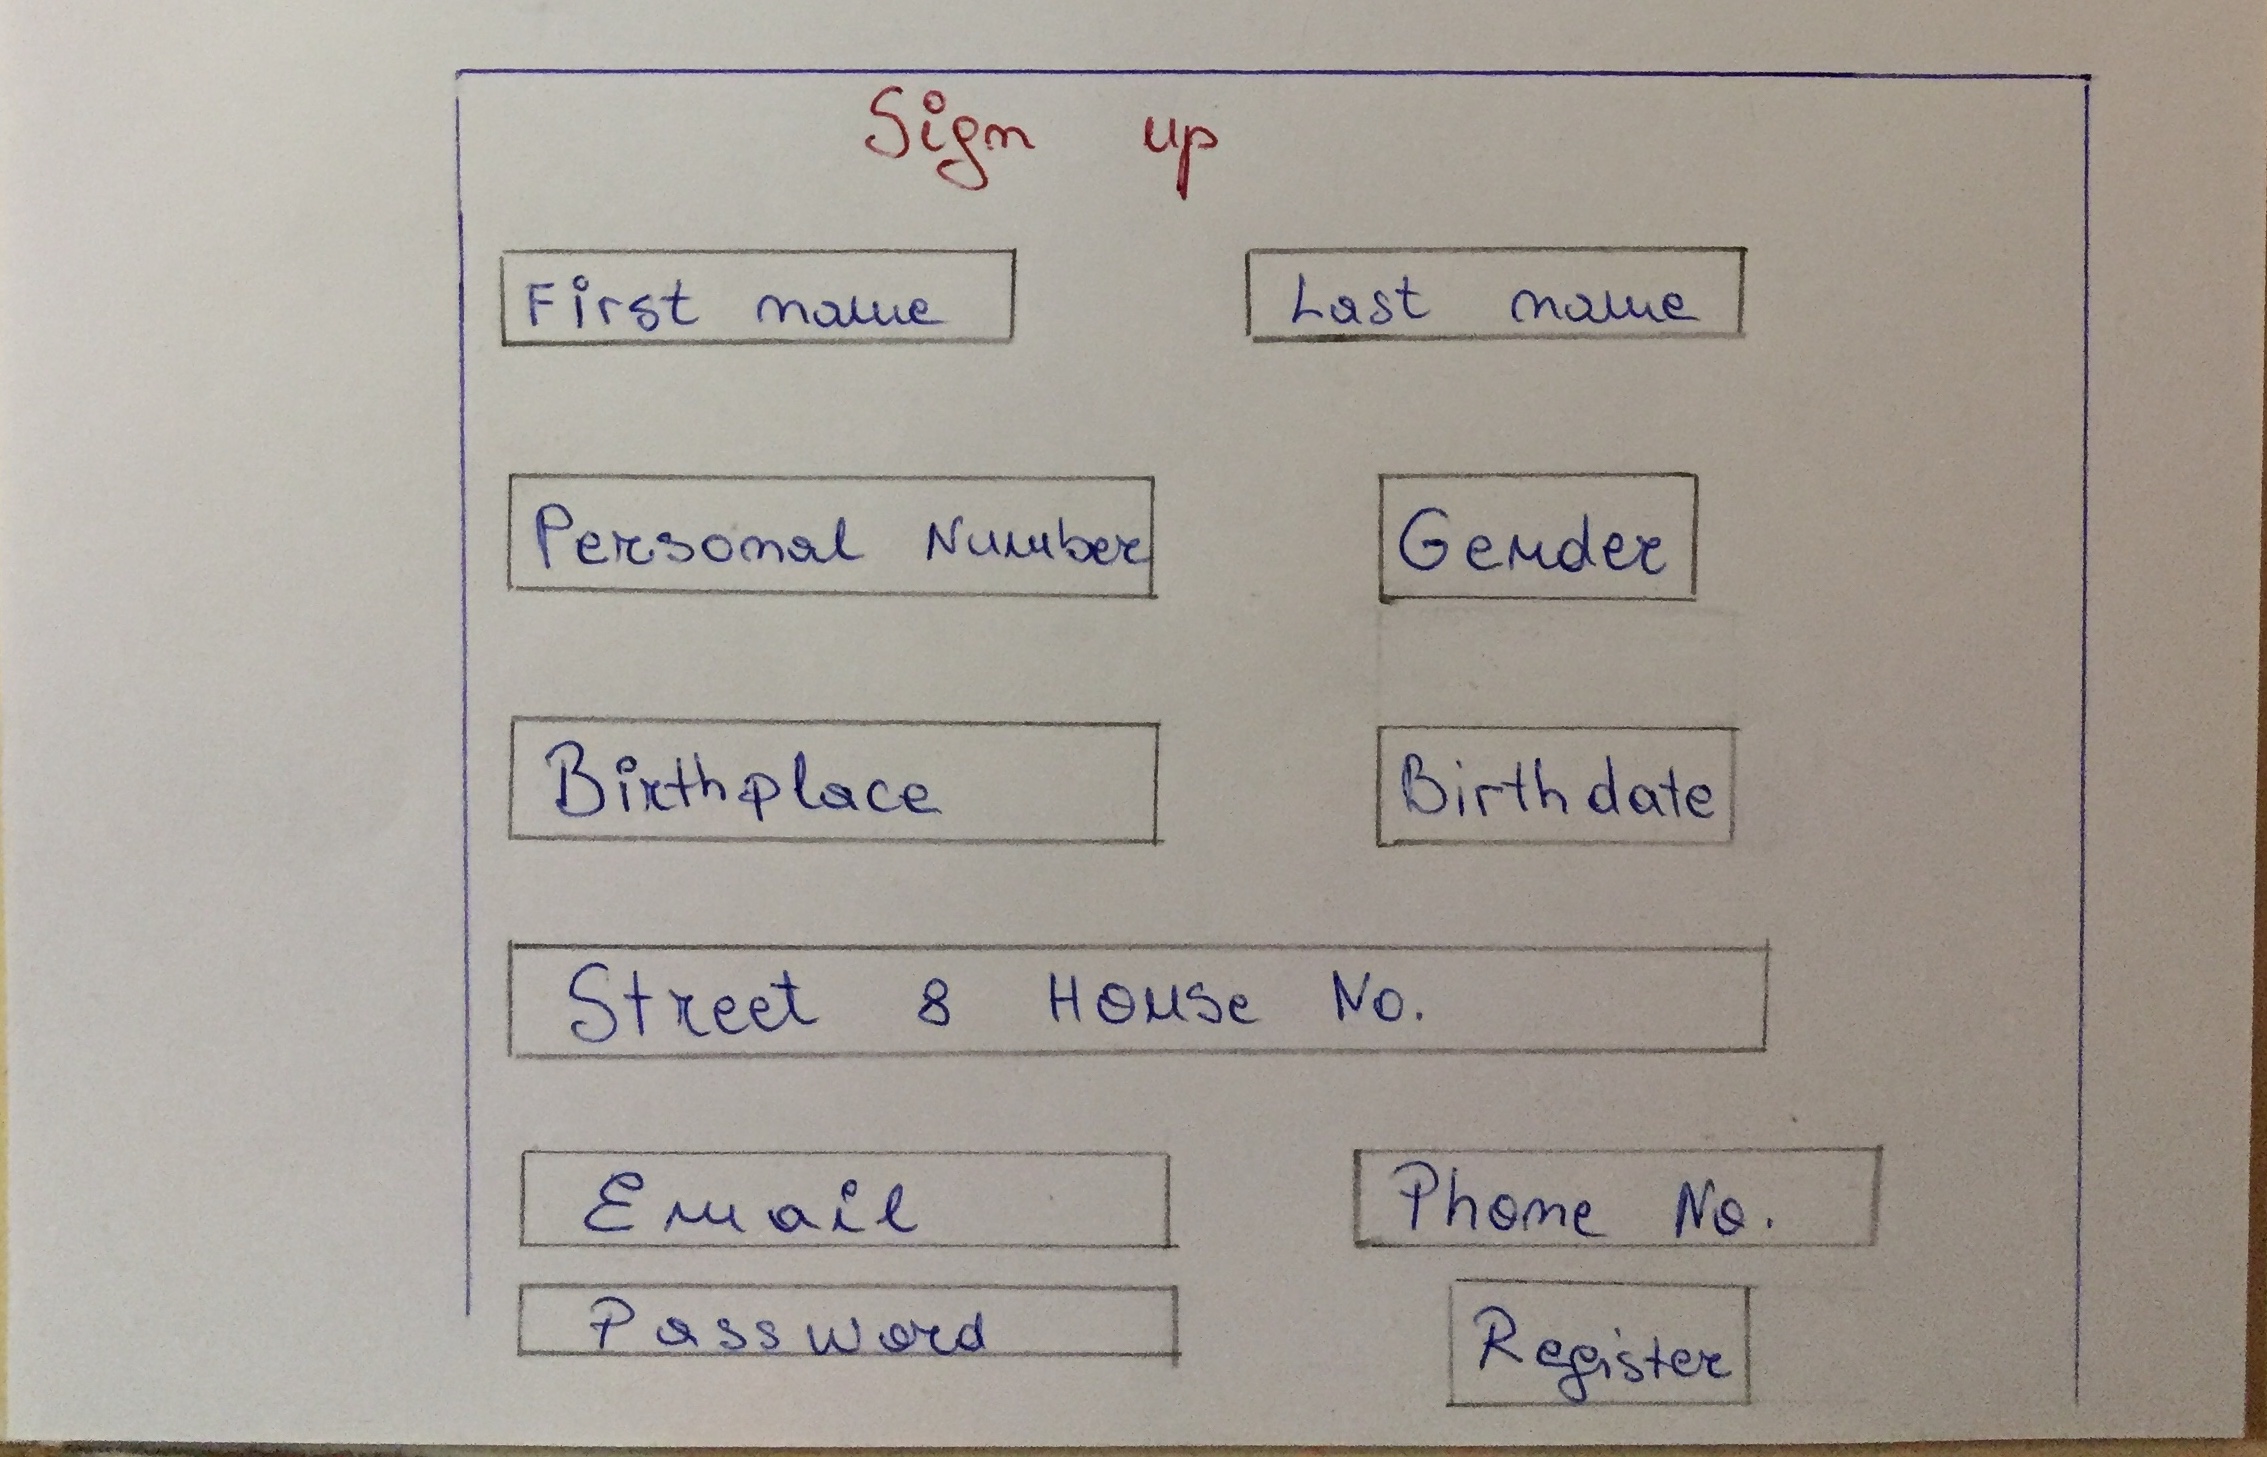 Sign up
First name Last name
Personal Number Gender
Birthplace Birthdate
Street & House No.
Email Phone No.
Password Register